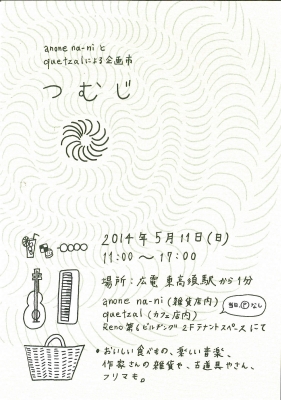 anone na-ni と
quetzalによる企画市
つむじ
2014年5月11日(日)
11:00〜17:00
場所：広電 東高須駅から1分
anone na-ni (雑貨店内)
quetzal (カフェ店内)
当日、Pなし
Reno 第6ビルディング 2Fテナントスペース にて
・おいしい食べもの、楽しい音楽、
作家さんの雑貨や、古道具やさん、
フリマも。